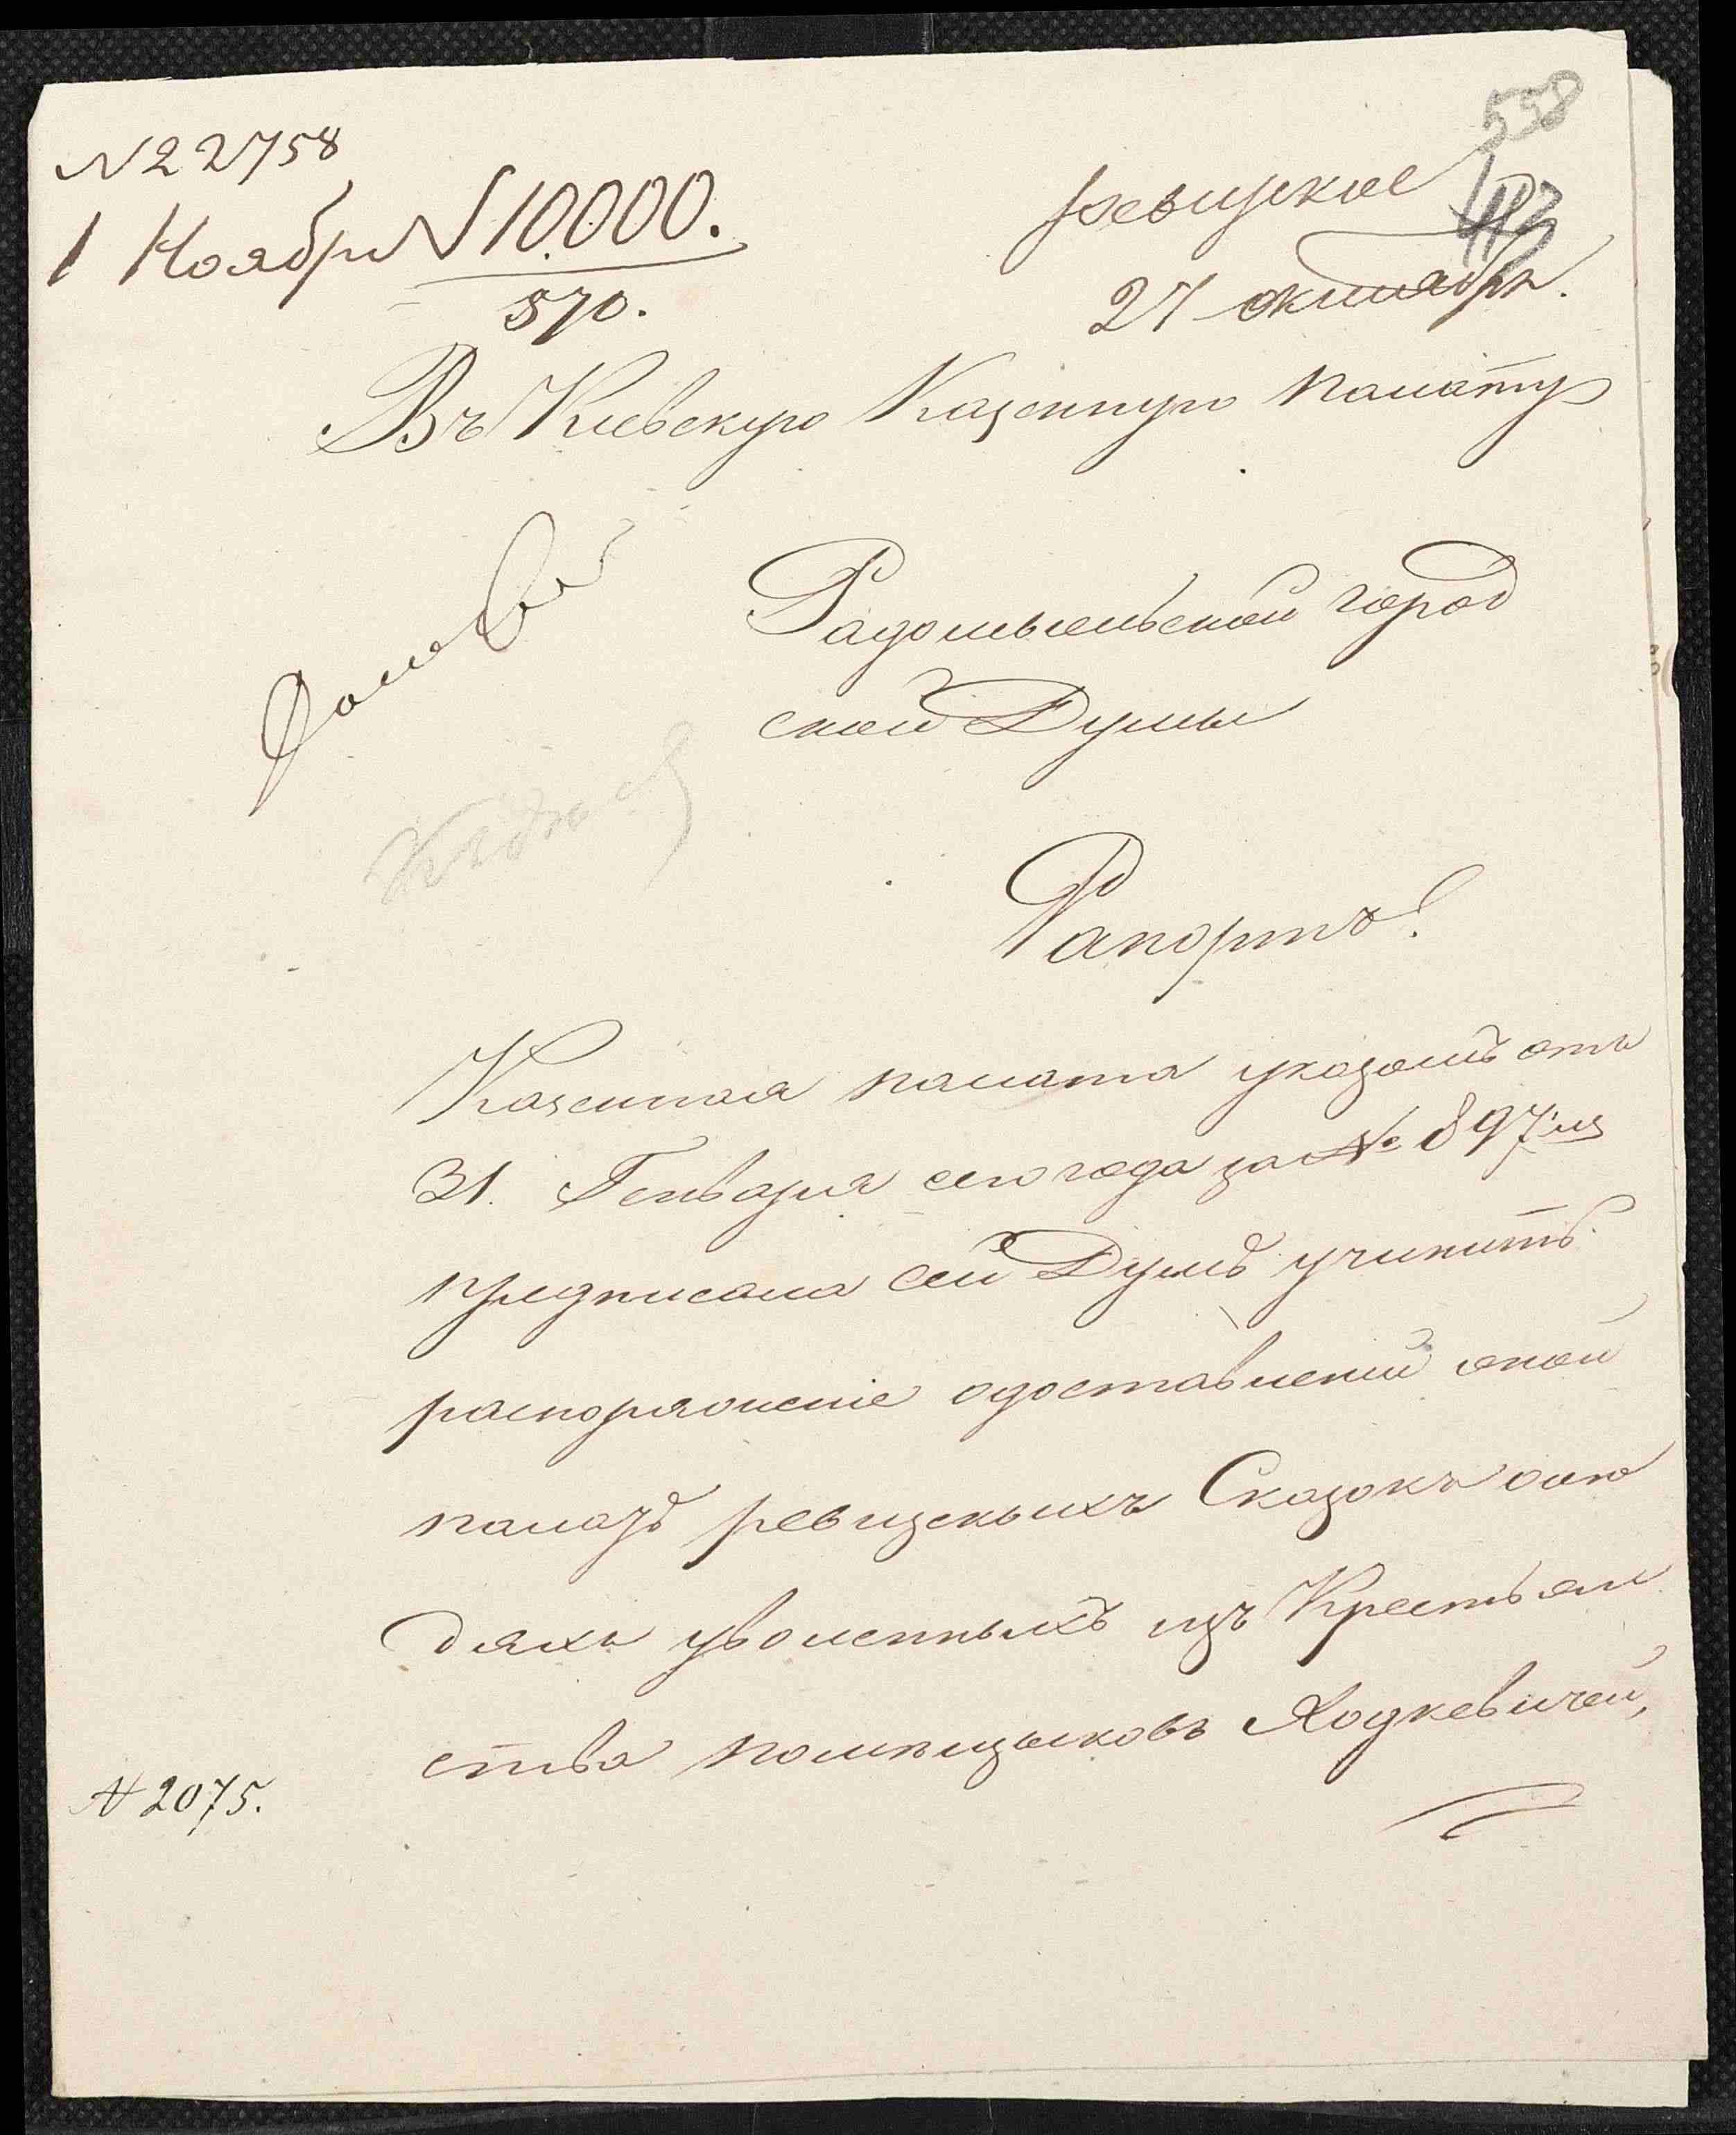 558
№ 22758
1 Ноября № 10000.
570.
ревизское
27 октября.
Въ Кіевскую Казенную Палату
Радомысльской город
ской Думы
Рапортъ.
Казенная палата указомъ отъ
31. Генваря сего года за № 897мъ
предписала сей Думѣ учинить
распоряженіе одоставленіи оной
палатѣ ревизскихъ Сказокъ олю
дяхъ уволенныхъ изъ Крестьян
ства помѣщиковъ Ходкевичей,
№ 2075.